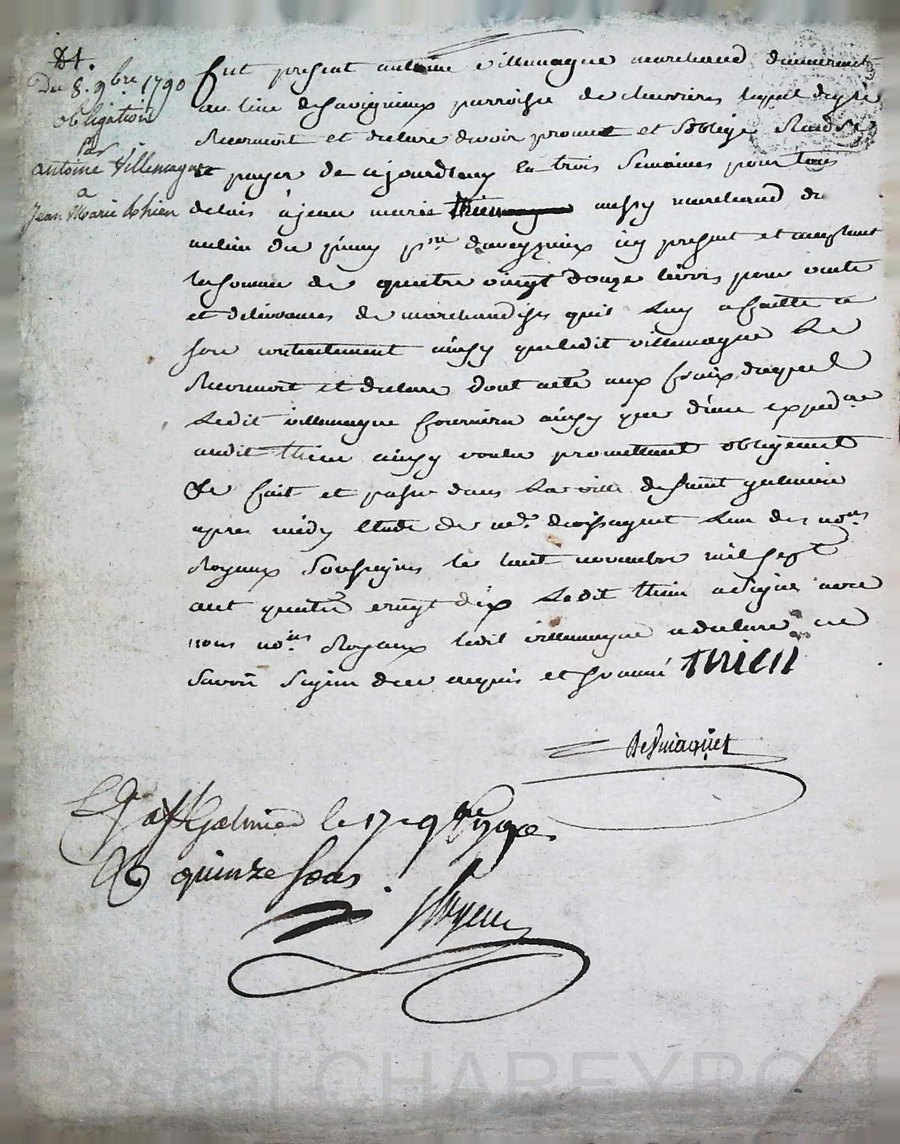 84.
Du 8. 9bre 1790
obligation
par
antoine Villemagne
a
Jean Marie thien
fut present antoine villemagne marchand demeurant
au lieu de savignieux parroisse de chevrieres lequel de gré
Reconnoit et declare devoir promet et soblige Rendre
et payer de cejourdhuy en trois semaines pour tous
delais à jean marie thien aussy marchand du
psse daveyzieux icy present et acceptant
la somme de quatre vingt douze livres pour vente
et delivrances de marchandises quil luy a faitte a
son contentement ainsy que ledit villemagne le
Reconnoit et declare dont acte aux fraix duquel
ledit villemagne fournira ainsy que dune expedon
audit thien ainsy voulu promettant obligeant
&c fait et passé dans la ville de saint galmier
apres midy Etude de me desmaquet lun des nores
Royaux soussignes le huit novembre mil sept
cent quatre vingt dix ledit thien a signé avec
nous nores Royaux ledit villemagne a declaré ne
savoir signer de ce enquis et sommé thien
desmaquet
Cé a St Galmier le 17 9bre 1790
R quinze sous